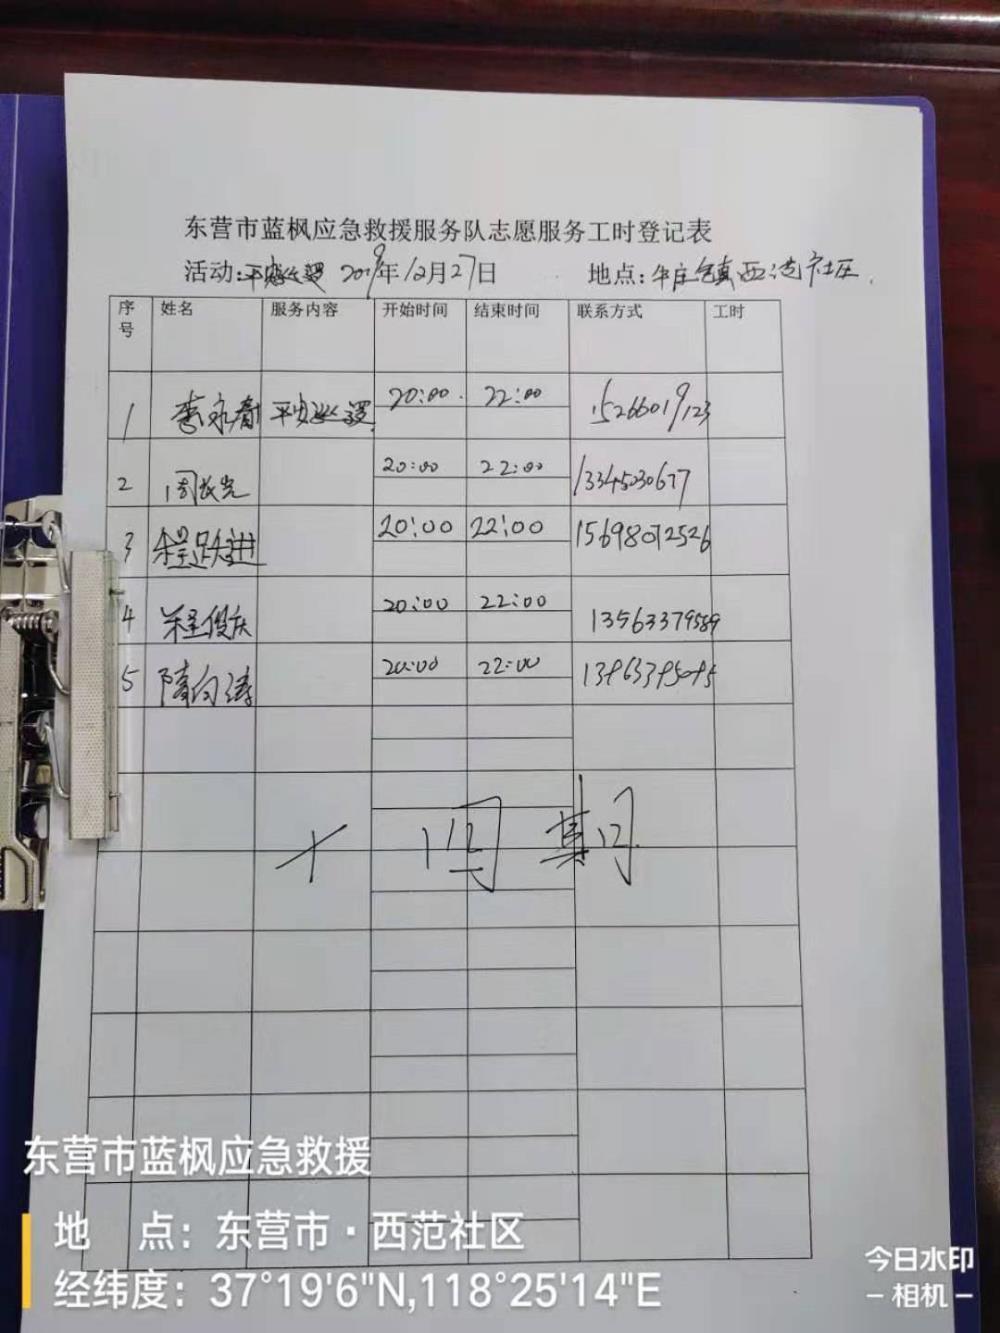 东营市蓝枫应急救援服务队志愿服务工时登记表
活动:平安巡逻 2019年12月27日 地点:牛庄镇西范社区.
序号 姓名 服务内容 开始时间 结束时间 联系方式 工时
1 李永春 平安巡逻 20:00 22:00 15266019123
2 周长光 20:00 22:00 13345030677
3 程跃进 20:00 22:00 15698072526
4 程俊庆 20:00 22:00 13563379589
5 隋向涛 20:00 22:00
东营市蓝枫应急救援
地 点:东营市·西范社区
经纬度:37°19'6"N,118°25'14"E
今日水印
－相机－